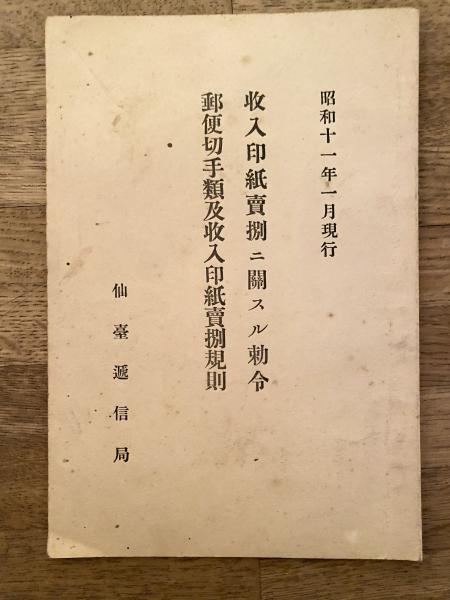 昭和十一年一月現行
收入印紙賣捌ニ關スル勅令
郵便切手類及收入印紙賣捌規則
仙臺遞信局